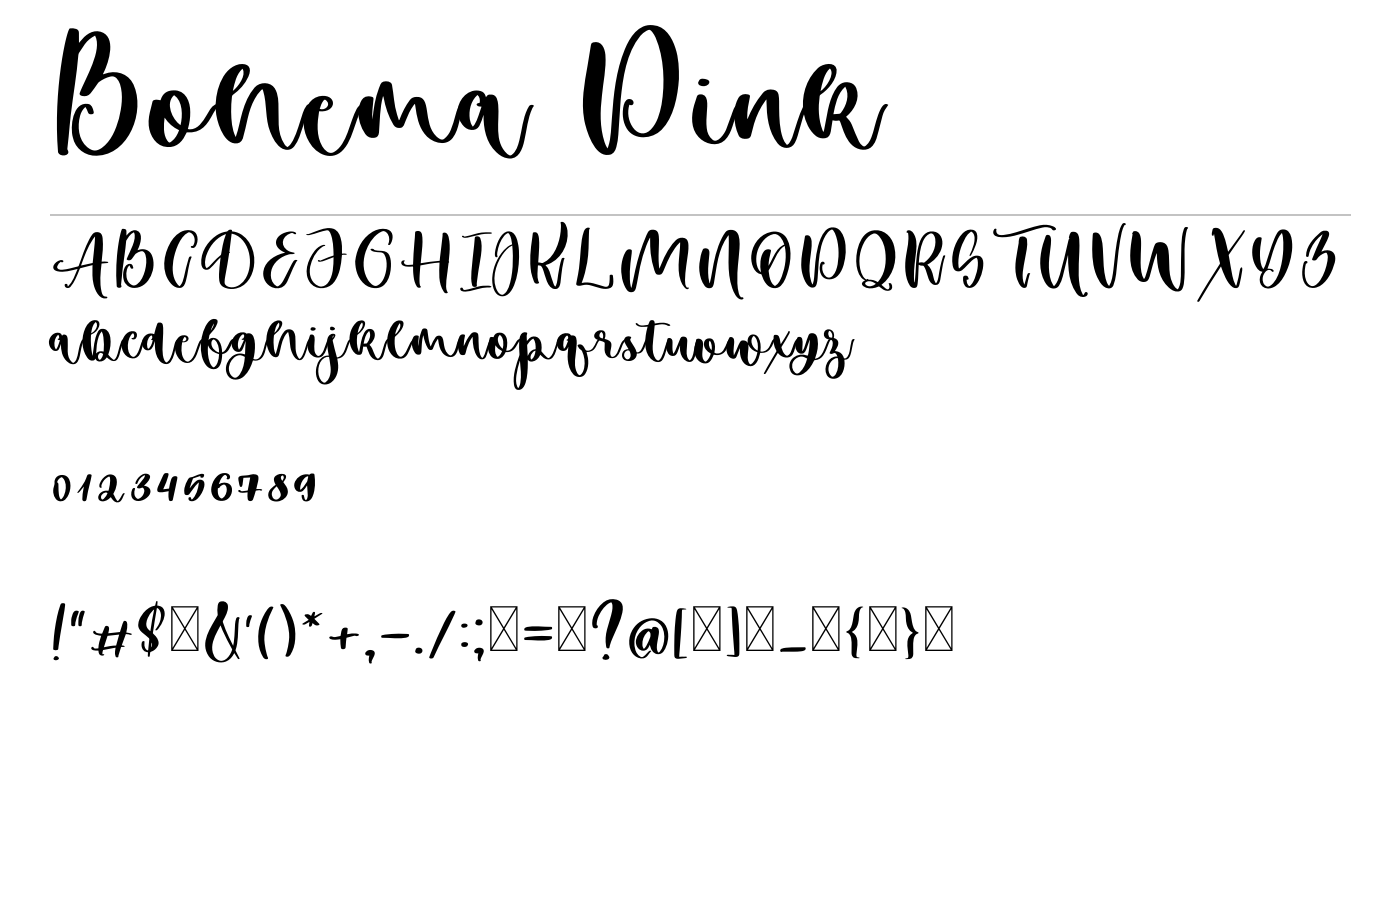 Bohema Pink
ABCDEFGHIJKLMNOPQRSTUVWXYZ
abcdefghijklmnopqrstuvwxyz
0123456789
!"#$&'()*+,-./:;=?@[]_{}